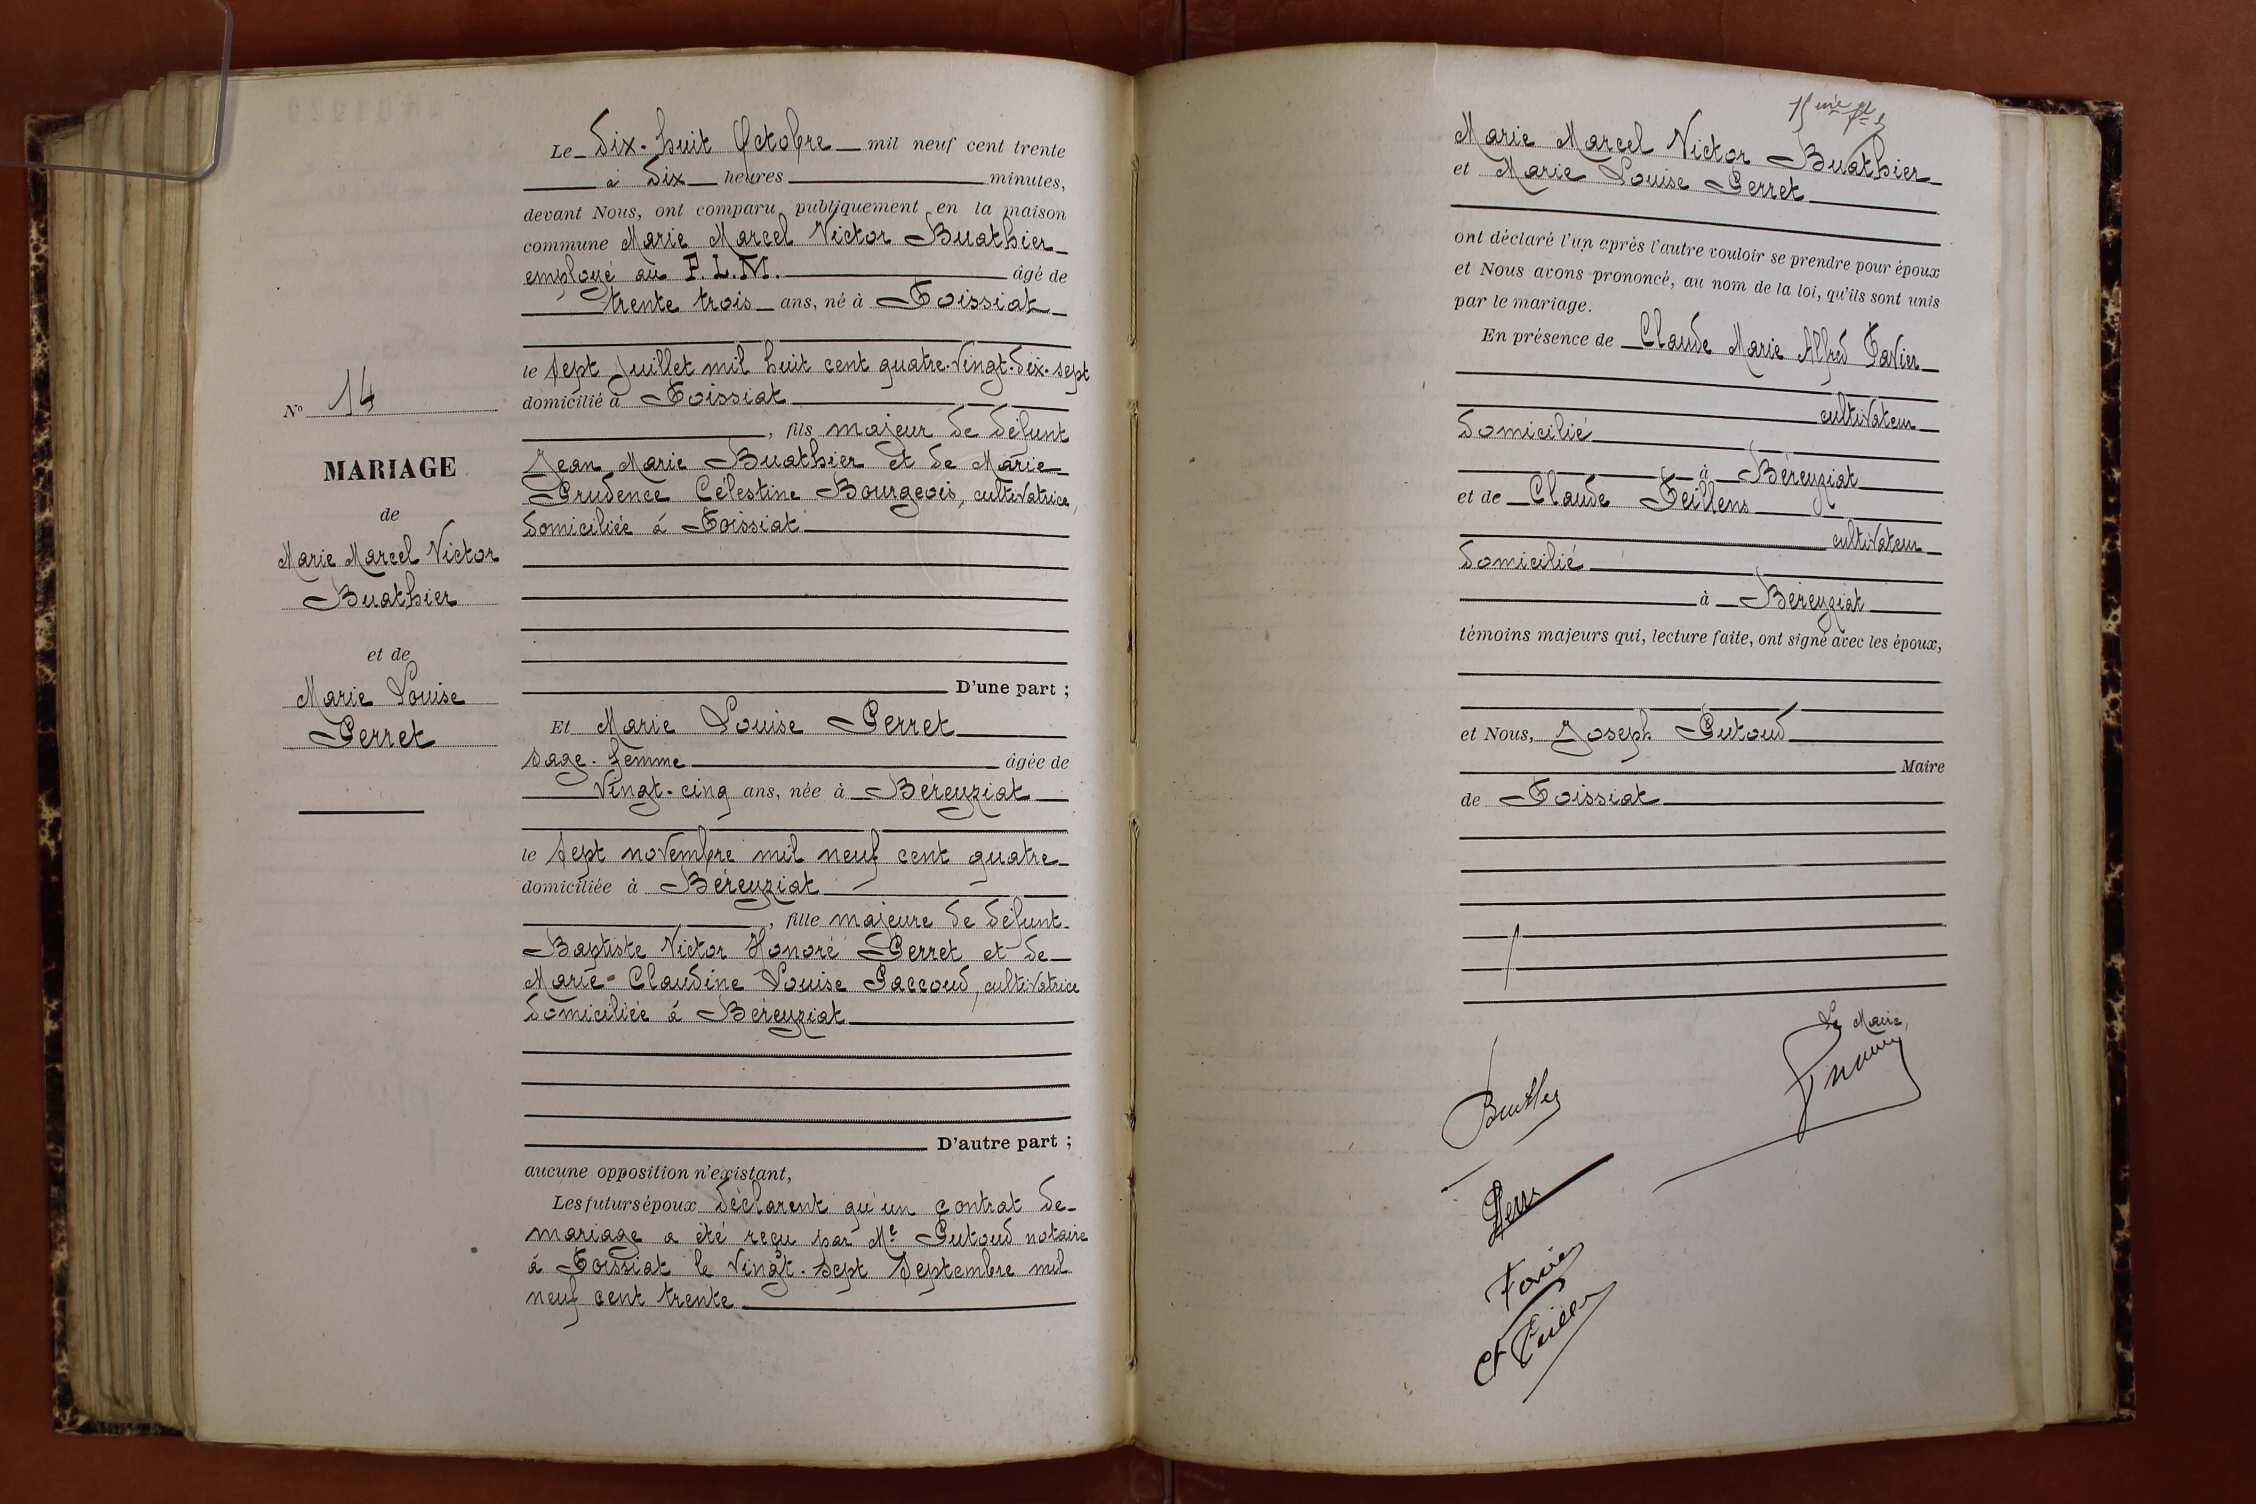 Le dix-huit Octobre mil neuf cent trente
à dix heures minutes,
devant Nous, ont comparu publiquement en la maison
commune Marie Marcel Victor Buathier
employé au P.L.M. âgé de
trente trois ans, né à Foissiat
le sept Juillet mil huit cent quatre-vingt-dix-sept
domicilié à Foissiat
, fils majeur de défunt
Jean Marie Buathier et de Marie
Prudence Célestine Bourgeois, cultivatrice,
domiciliée à Foissiat
D'une part ;
Et Marie Louise Perret
sage-femme âgée de
vingt-cinq ans, née à Béreyziat
le sept novembre mil neuf cent quatre
domiciliée à Béreyziat
, fille majeure de défunt
Baptiste Victor Honoré Perret et de
Marie-Claudine Louise Paccoud, cultivatrice
domiciliée à Béreyziat
D'autre part ;
aucune opposition n'existant,
Les futurs époux déclarent qu'un contrat de
mariage a été reçu par Me Putoud notaire
à Foissiat le vingt-sept Septembre mil
neuf cent trente
No 14
MARIAGE
de
Marie Marcel Victor
Buathier
et de
Marie Louise
Perret
Marie Marcel Victor Buathier
et Marie Louise Perret
ont déclaré l'un après l'autre vouloir se prendre pour époux
et Nous avons prononcé, au nom de la loi, qu'ils sont unis
par le mariage.
En présence de Claude Marie Alfred Favier
cultivateur
domicilié
à Béreyziat
et de Claude Feillens
cultivateur
domicilié
à Béreyziat
témoins majeurs qui, lecture faite, ont signé avec les époux,
et Nous, Joseph Putoud
Maire
de Foissiat
Le Maire,
Buathier
Favier